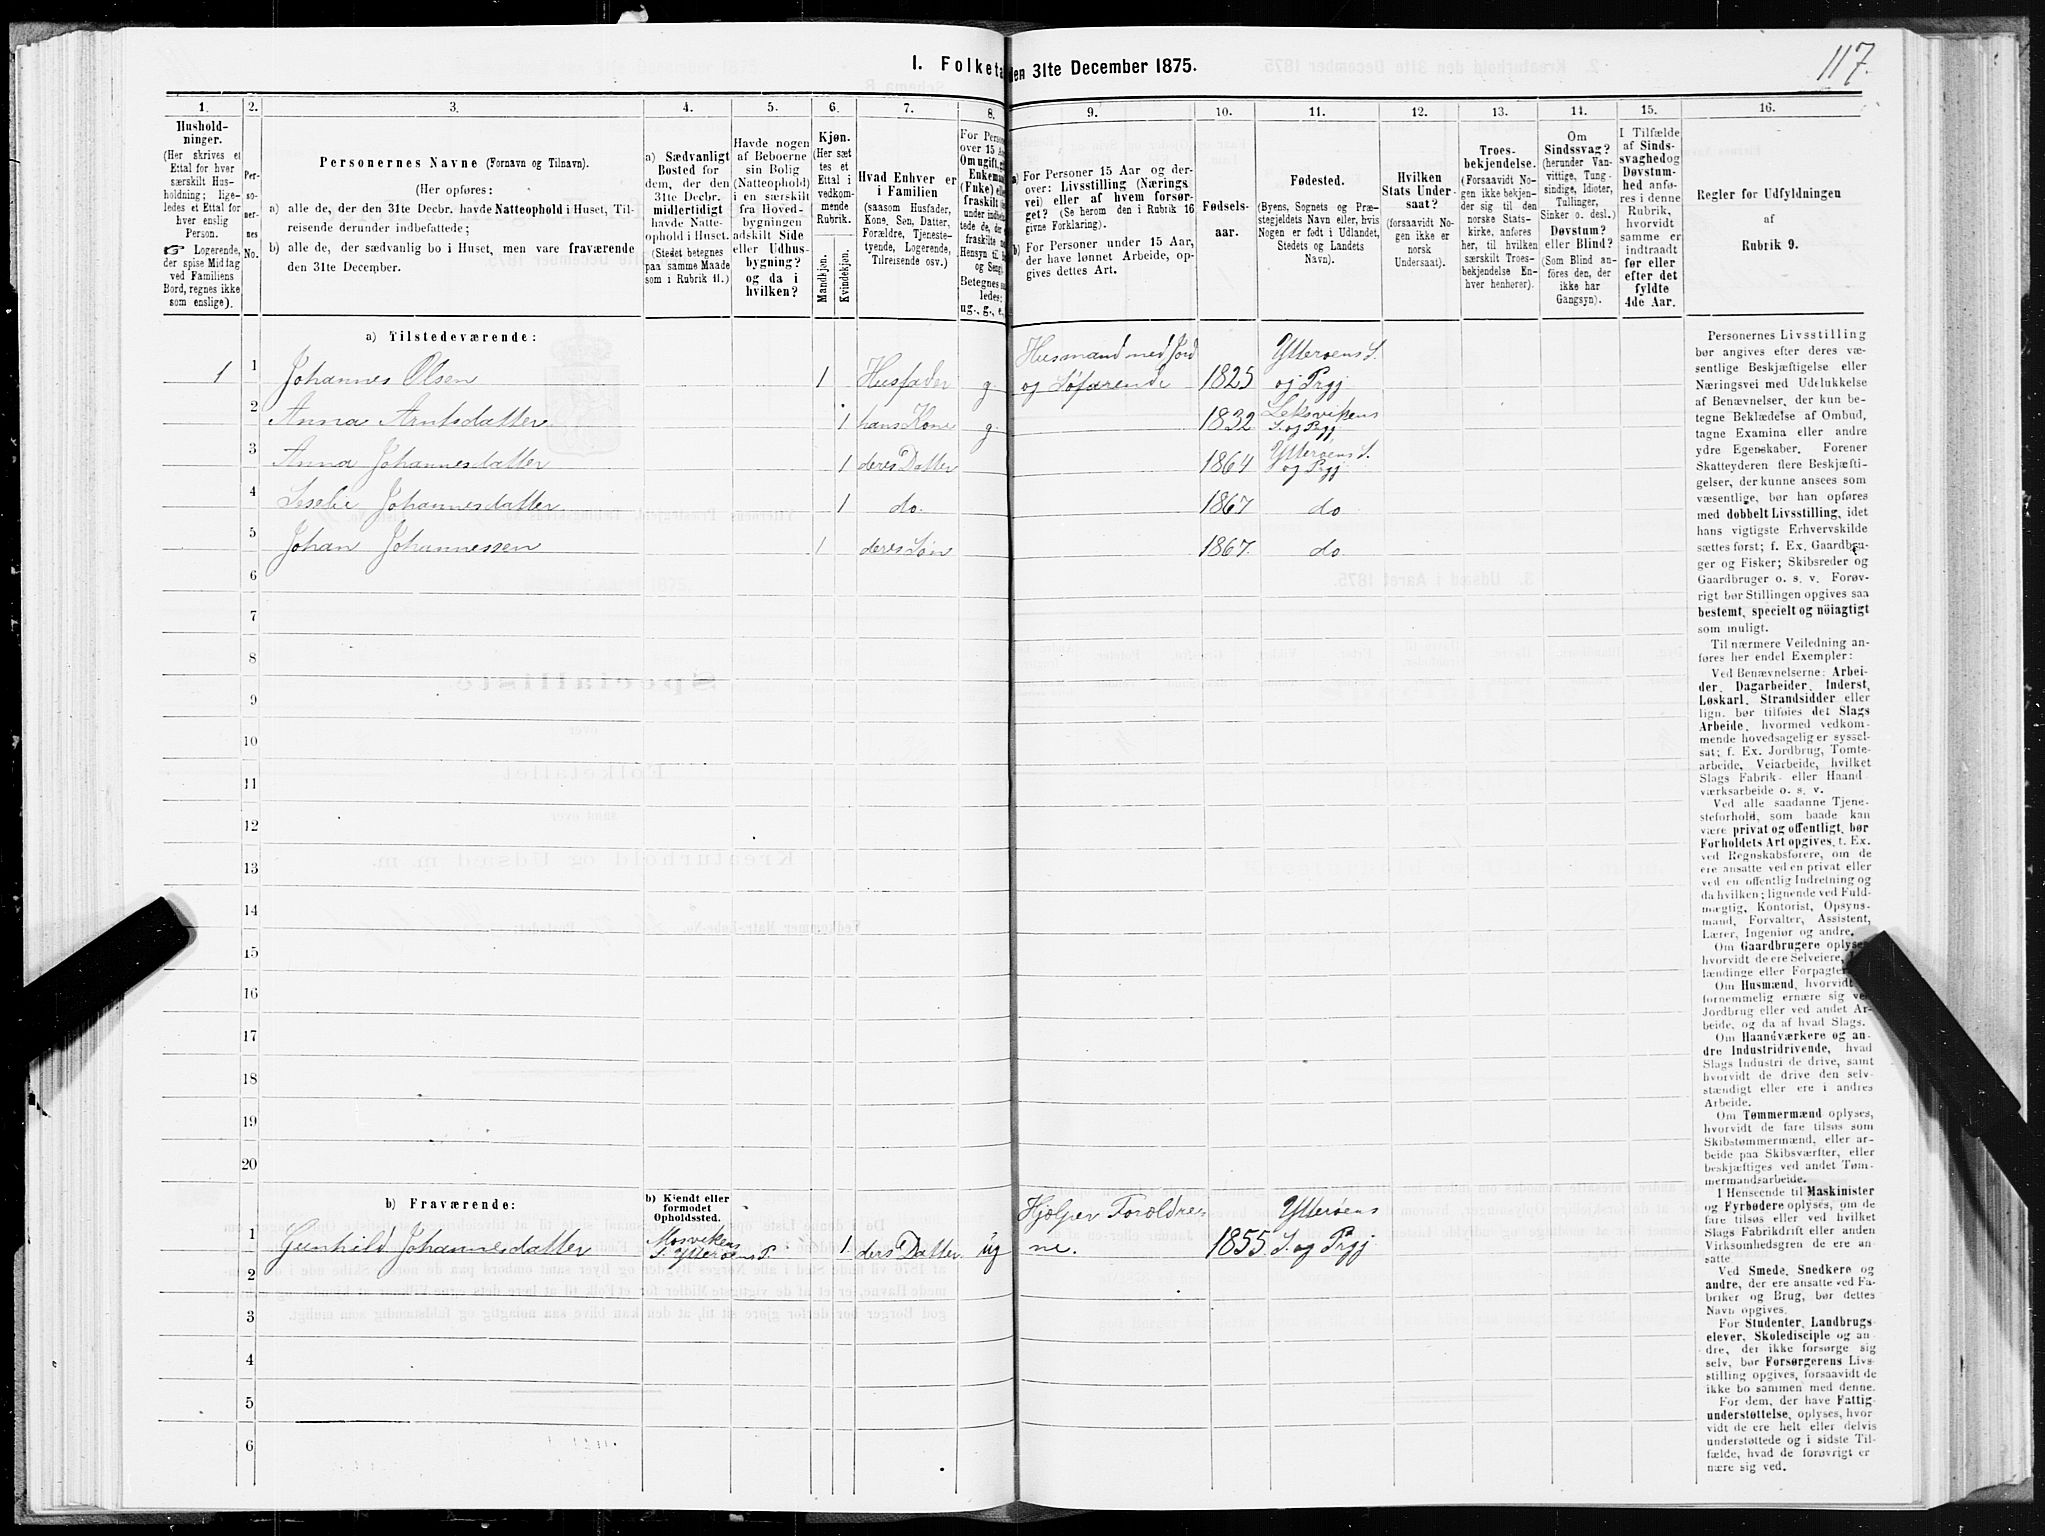 117.
I. Folketa
den 31te December 1875.
1.
2.
3.
4.
5.
6.
7.
8.
9.
10.
11.
12.
13.
14.
15.
16.
Hushold-
ninger.
(Her skrives et
Ettal for hver
særskilt Hus-
holdning; lige-
ledes et Ettal for
hver enslig
Person.
Logerende,
der spise Middag
ved Familiens
Bord, regnes ikke
som enslige).
Per-
so-
ner-
nes
No.
Personernes Navne (Fornavn og Tilnavn).
(Her opføres:
a) alle de, der den 31te Decbr. havde Natteophold i Huset, Til-
reisende derunder indbefattede;
b) alle de, der sædvanlig bo i Huset, men vare fraværende
den 31te December.
a) Sædvanligt
Bosted for
dem, der den
31te Decbr.
midlertidigt
havde Natte-
ophold i Huset.
(Stedet betegnes
paa samme Maade
som i Rubrik 11.)
Havde nogen
af Beboerne
sin Bolig
(Natteophold)
i en særskilt
fra Hoved-
bygningen
adskilt Side
eller Udhus-
bygning?
og da i
hvilken?
Kjøn.
(Her sæt
tes et
Ettal i
vedkom-
mende
Rubrik.
Mandkjøn.
Kvindekjøn.
Hvad Enhver er
i Familien
(saasom Husfader,
Kone, Søn, Datter,
Forældre, Tjeneste-
tyende, Logerende,
Tilreisende osv.)
For Perso
over 15 Aa
Om ugift, g
Enkema
(Fuke) elle
fraskilt
under indbe
tede de, de
fraskilte
Hensyn til
og Seng
Betegnes sa
ledes:
ug., g., e.,
a) For Personer 15 Aar og der-
over: Livsstilling (Nærings
vei) eller af hvem forsør-
get? (Se herom den i Rubrik 16
givne Forklaring).
b) For Personer under 15 Aar,
der have lønnet Arbeide, op-
gives dettes Art.
Fødsels-
aar.
Fødested.
(Byens, Sognets og Præ-
stegjeldets Navn eller, hvis
Nogen er født i Udlandet,
Stedets og Landets
Navn).
Hvilken
Stats Under-
saat?
(forsaavidt No-
gen ikke er
norsk
Undersaat).
Troes-
bekjendelse.
(Forsaavidt No-
gen ikke bekjen-
der sig til den
norske Stats-
kirke, anføres
her, til hvilken
særskilt Troes-
bekjendelse En-
hver henhører).
Om
Sindssvag?
(herunder Van-
vittige, Tung-
sindige, Idioter,
Tullinger,
Sinker o. desl.)
Døvstum?
eller Blind?
(Som Blind an-
føres den, der
ikke har
Gangsyn).
I Tilfælde
af Sinds-
svaghed og
Døvstum-
hed anfø-
res i denne
Rubrik,
hvorvidt
samme er
indtraadt
før eller
efter det
fyldte
4de Aar.
Regler for Udfyldningen
af
Rubrik 9.
a) Tilstedeværende:
1 1 Johannes Olsen 1 Husfader g. Husmand med Jord
og Søfarende 1825 Ytterøens S.
og Prgj
2 Anna Arntsdatter 1 hans Kone g. 1832 Leksvikens
S. og Prgj
3 Anna Johannesdatter 1 deres Datter 1864 Ytterøens S.
og Prgj
4 Johannesdatter 1 do. 1867. do
5 Johan Johannessen 1 deres Søn 1867. do
6
7
8
9
10
11
12
13
14
15
16
17
18
19
20
b) Fraværende:
b) Kjendt eller
formodet
Opholdssted.
1 Gunhild Johannesdatter Mosvikens
S. Ytterøens P. 1 ders Datter ug Hjælper Forældre
ne. 1855 Ytterøens
S. og Prgj
2
3
4
5
6
Personernes Livsstilling
bør angives efter deres væ-
sentlige Beskjæftigelse eller
Næringsvei med Udelukkelse
af Benævnelser, der kun be-
tegne Beklædelse af Ombud,
tagne Examina eller andre
ydre Egenskaber. Forener
Skatteyderen flere Beskjæfti-
gelser, der kunne ansees som
væsentlige, bør han opføres
med dobbelt Livsstilling, idet
hans vigtigste Erhvervskilde
sættes først; f. Ex. Gaardbru-
ger og Fisker; Skibsreder og
Gaardbruger o. s. v. Forøv-
rigt bør Stillingen opgives saa
bestemt, specielt og nöiagtigt
som muligt.
Til nærmere Veiledning an-
føres her endel Exempler:
Ved Benævnelserne: Arbei-
der, Dagarbeider, Inderst,
Løskarl, Strandsidder eller
lign. bør tilføies det Slags
Arbeide, hvormed vedkom-
mende hovedsagelig er syssel-
sat; f. Ex. Jordbrug, Tomte-
arbeide, Veiarbeide, hvilket
Slags Fabrik- eller Haand-
værksarbeide o. s. v.
Ved alle saadanne Tjene-
steforhold, som baade kan
være privat og offentligt, bør
Forholdets Art opgives, f. Ex.
ved Regnskabsførere, om de
ere ansatte ved en privat eller
ved en offentlig Indretning og
da hvilken; lignende ved Fuld-
mægtig, Kontorist, Opsyns-
mand, Forvalter, Assistent,
Lærer, Ingeniør og andre.
Om Gaardbrugere oplyses,
hvorvidt de ere Selveiere,
lændinge eller Forpagter
Om Husmænd, hvorvidt
fornemmelig ernære sig ved
Jordbrug eller ved andet Ar-
beide, og da af hvad Slags.
Om Haandværkere og an-
dre Industridrivende, hvad
Slags Industri de drive, samt
hvorvidt de drive den selv-
stændigt eller ere i andres
Arbeide.
Om Tømmermænd oplyses,
hvorvidt de fare tilsøs som
Skibstømmermænd, eller ar-
beide paa Skibsværfter, eller
beskjæftiges ved andet Tøm-
mermandsarbeide.
I Henseende til Maskinister
og Fyrbødere oplyses, om de
fare tilsøs eller ved hvilket
Slags Fabrikdrift eller anden
Virksomhedsgren de ere an-
satte.
Ved Smede, Snedkere og
andre, der ere ansatte ved Fa-
briker og Brug, bør dettes
Navn opgives.
For Studenter, Landbrugs-
elever, Skoledisciple og an-
dre, der ikke forsørge sig
selv, bør Forsørgerens Livs-
stilling opgives, forsaavidt de
ikke bo sammen med denne.
For dem, der have Fattig-
understøttelse, oplyses, hvor-
vidt de ere helt eller delvis
understøttede og i sidste Til-
fælde, hvad de forøvrigt er-
nære sig ved.